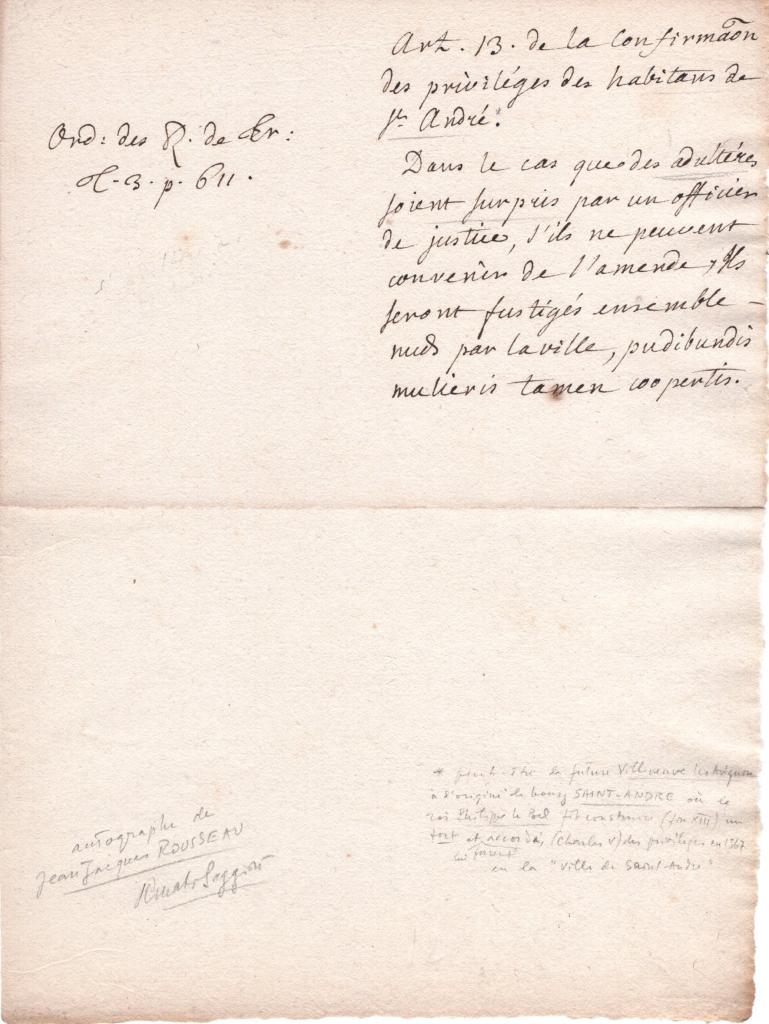 Art. 13. de la Confirmaõn
des priviléges des habitans de
St. André.
Ord: des R. de Fr:
t. 3. p. 611.
Dans le cas que des adultéres
soient surpris par un officier
de justice, s'ils ne peuvent
convenir de l'amende, Ils
seront fustigés ensemble
nuds par la ville, pudibundis
mulieris tamen coopertis.
* peut-être la future Villeneuve les Avignon
à l'origine le bourg SAINT-ANDRE où le
roi Philippe le Bel fit construire (fin XIII) un
fort et accordés (Charles V) des privilèges en 1367
furent
en la "Ville de Saint-André"
autographe de
Jean Jacques ROUSSEAU
Renato Saggiori